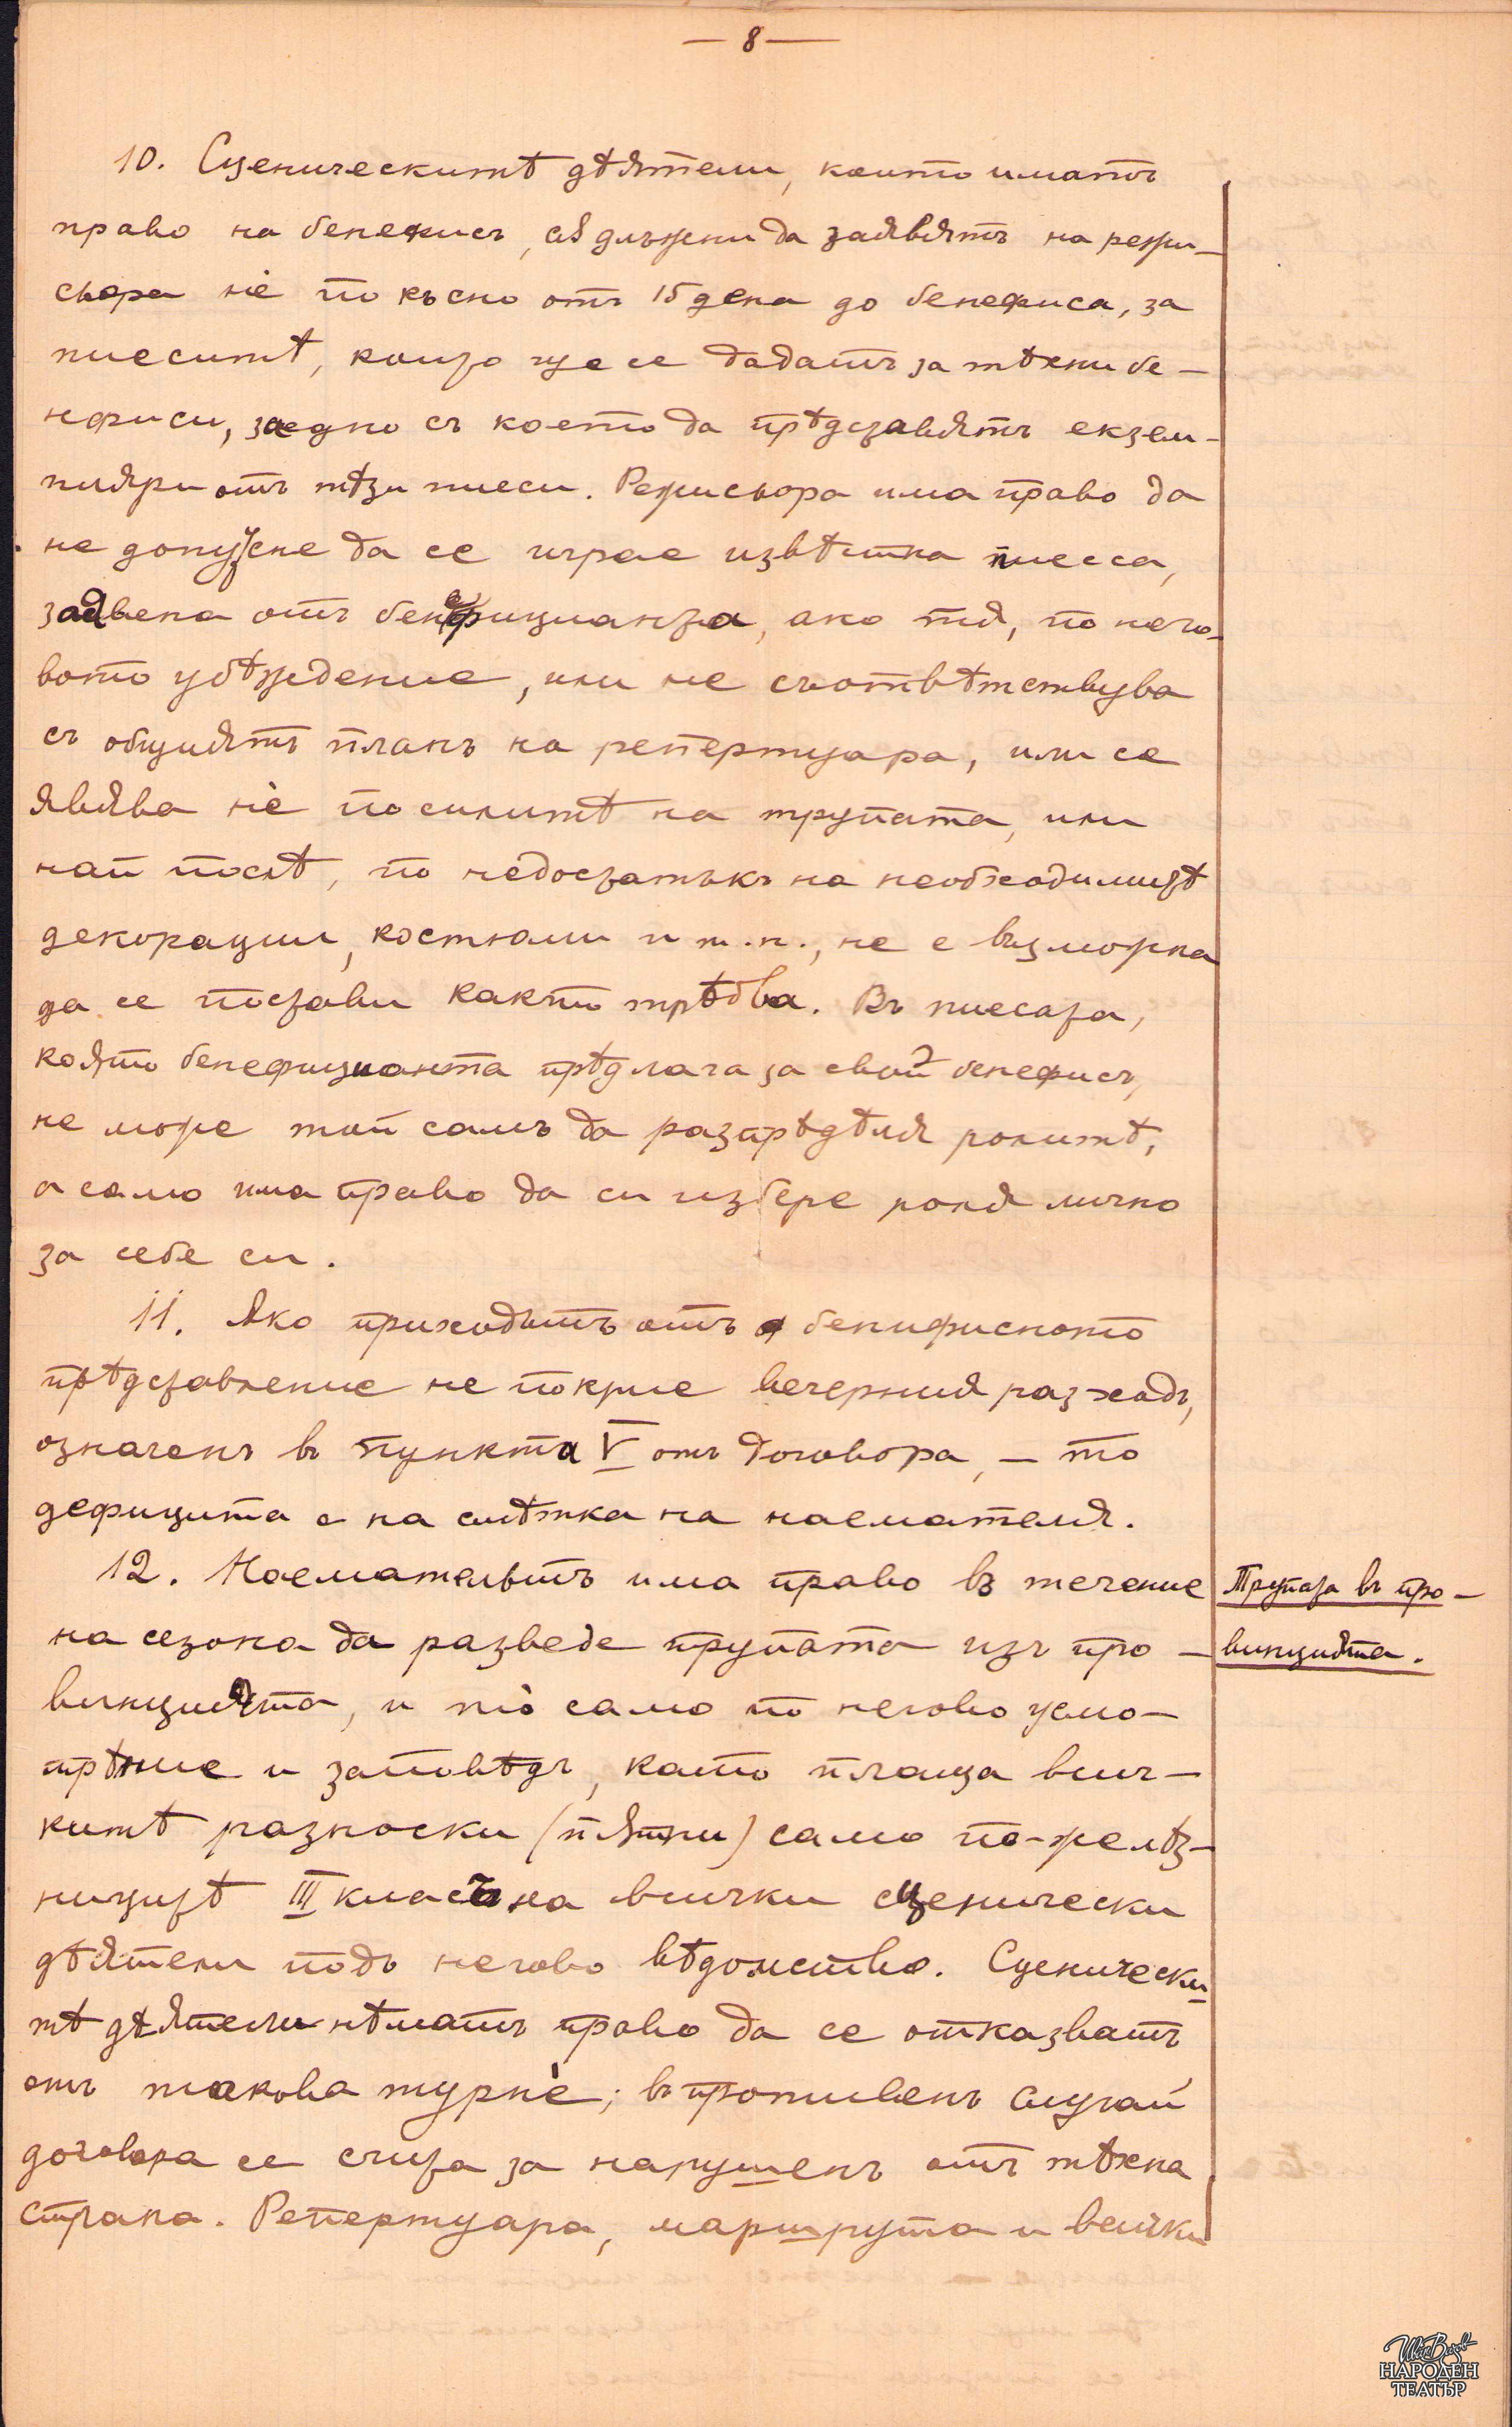 — 8 —
10. Сценическитѣ дѣятели, които иматъ
право на бенефисъ, сѫ длъжни да заявятъ на режи-
сьора нè по късно отъ 15 дена до бенефиса, за
пиеситѣ, които ще се дадатъ за тѣхни бе-
нефиси, заедно съ което да прѣдставятъ екзем-
пляри отъ тѣзи пиеси. Режисьора има право да
не допустне да се играе извѣстна пиеса,
заявена отъ бенефицианта, ако тя, по него-
вото убѣждение, или не съотвѣтствува
съ общиятъ планъ на репертуара, или се
явява нè по силитѣ на трупата, или
най послѣ, по недостатъкъ на необходимитѣ
декорации, костюми и т.н., не е възможна
да се постави както трѣбва. Въ пиесата,
която бенефицианта прѣдлага за свой бенефисъ,
не може той самъ да разпрѣдѣля ролитѣ,
а само има право да си избере роля лично
за себе си.
11. Ако приходътъ отъ бенифисното
прѣдставление не покрие вечерния разходъ,
означенъ въ пункта V отъ договора, – то
дефицита е на смѣтка на наемателя.
12. Наемательтъ има право въ течение
Трупата въ про-
на сезона да разведе трупата изъ про-
винцията.
винцията, и тò само по негово усмо-
трѣние и заповѣдъ, като плаща всич-
китѣ разноски (пѫтни) само по-желѣз-
ницитѣ III класъ на всички сценически
дѣятели подъ негово вѣдомство. Сценически-
тѣ дѣятели нѣматъ право да се отказватъ
отъ такова турнè; въ противенъ случай
договора се счита за нарушенъ отъ тѣхна
страна. Репертуара, маршрута и всички
ИВАН ВАЗОВ
НАРОДЕН
ТЕАТЪР